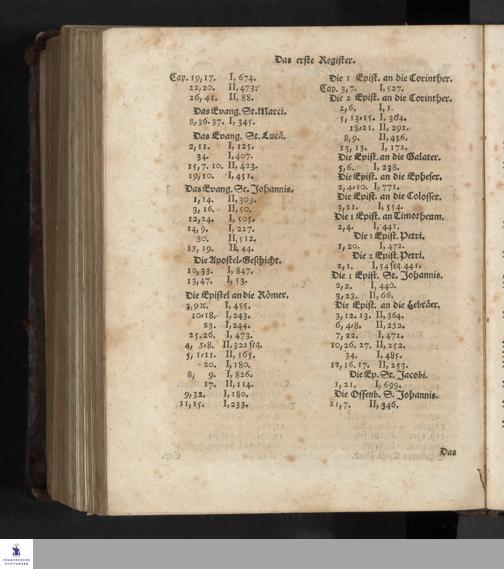 Das erste Register.
Cap. 19,17. I, 674.
22,20. II, 473.
26,41. II, 88.
Das Evang. St. Marci.
8,36.37. I, 345.
Das Evang. St. Lucä.
2,11. I, 125.
34. I, 407.
15,7.10. II, 423.
19,10. I, 451.
Das Evang. St. Johannis.
1,14. II, 303.
3,16. II, 50.
12,24. I, 505.
14,9. I, 227.
30. II, 512.
15,19. II, 44.
Die Apostel-Geschicht.
10,33. I, 847.
13,47. I, 53.
Die Epistel an die Römer.
3,9 I, 495.
10-18. I, 243.
23. I, 244.
25.26. I, 473.
4, 5-8. II, 322 seq.
5, 1-11. II, 165.
20. I, 180.
8, 9. I, 826.
17. II, 114.
9,32. I, 180.
11,15. I, 233.
Die 1 Epist. an die Corinther.
Cap. 3,7. I, 527.
Die 2 Epist. an die Corinther.
2,6. I, 1.
5,13-15. I, 364.
18-21. II, 292.
8,9. II, 456.
13,13. I, 172.
Die Epist. an die Galater.
5,6. I, 238.
Die Epist. an die Epheser.
2,4-10. I, 771.
Die Epist. an die Colosser.
3,11. I, 554.
Die 1 Epist. an Timotheum.
2,4. I, 441.
Die 1 Epist. Petri.
1,20. I, 472.
Die 2 Epist. Petri.
2,1. I, 54 seq. 441.
Die 1 Epist. St. Johannis.
2,2. I, 440.
3,23. II, 66.
Die Epist. an die Hebräer.
3,12.13. II, 364.
6,4-8. II, 252.
7,22. I, 472.
10,26.27. II, 252.
34. I, 485.
12,16.17. II, 253.
Die Ep. St. Jacobi.
1,21. I, 699.
Die Offenb. S. Johannis.
21,7. II, 346.
Das
FRANCKESCHE
STIFTUNGEN